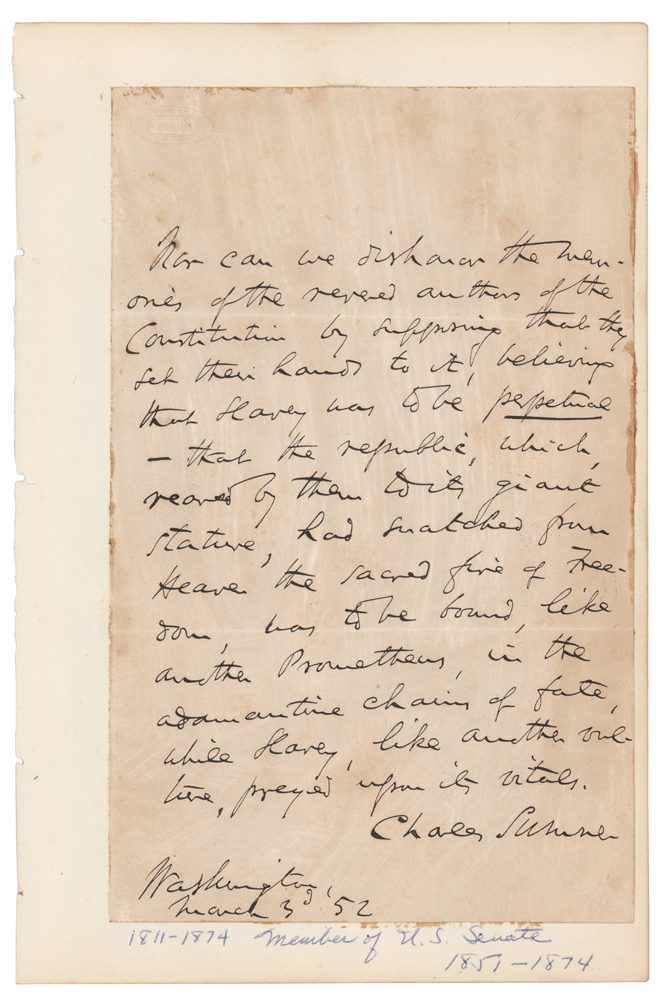 Nor can we dishonor the mem-
ories of the revered authors of the
Constitution by supposing that they
set their hands to it, believing
that Slavery was to be perpetual
— that the republic, which,
reared by them to its giant
stature, had snatched from
Heaven the sacred fire of Free-
dom, was to be bound, like
another Prometheus, in the
adamantine chains of fate,
while Slavery, like another vul-
ture, preyed upon its vitals.
Charles Sumner
Washington,
March 3d '52
1811-1874 Member of U.S. Senate
1851-1874